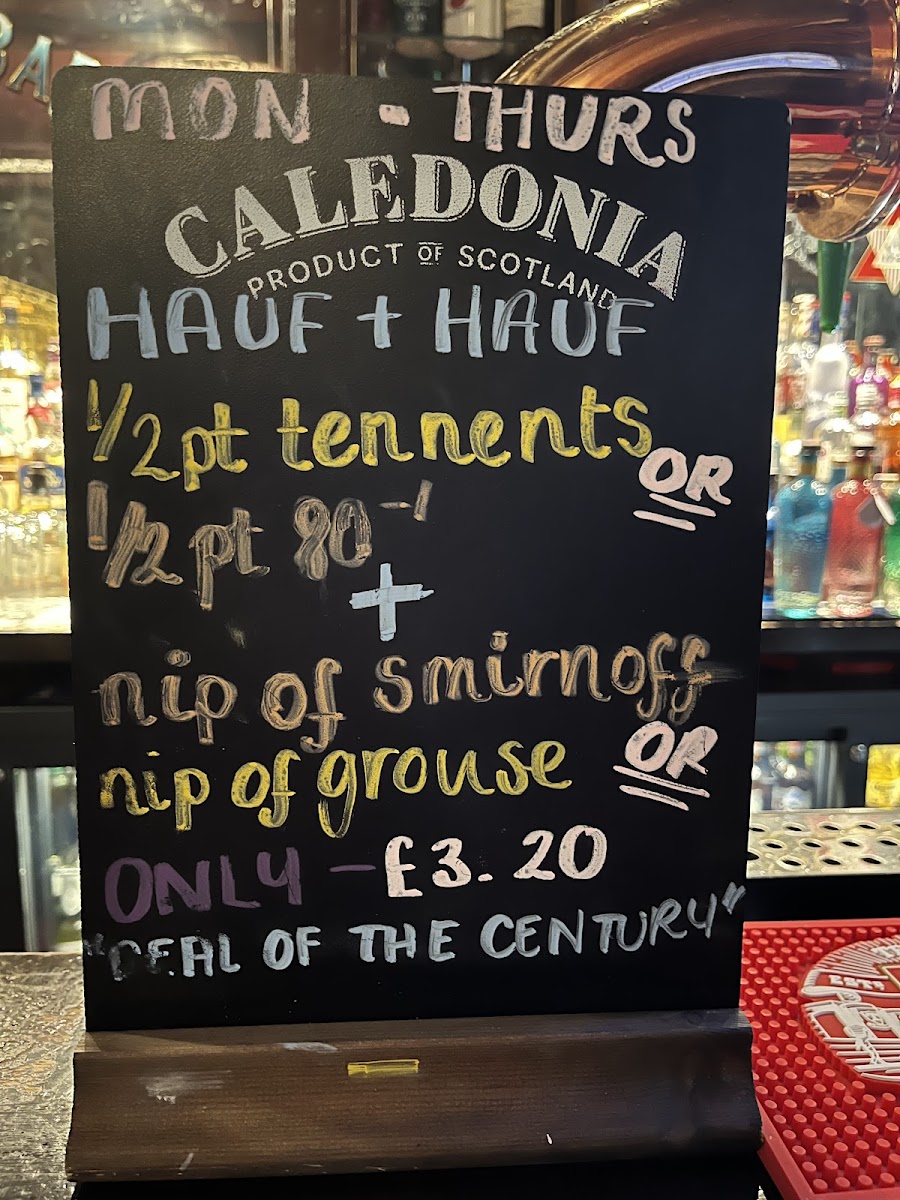 MON - THURS
CALEDONIA
PRODUCT OF SCOTLAND
HAUF + HAUF
1/2pt tennents
OR
1/2 pt 80-/
+
nip of smirnoff
OR
nip of grouse
ONLY - £3.20
"DEAL OF THE CENTURY"